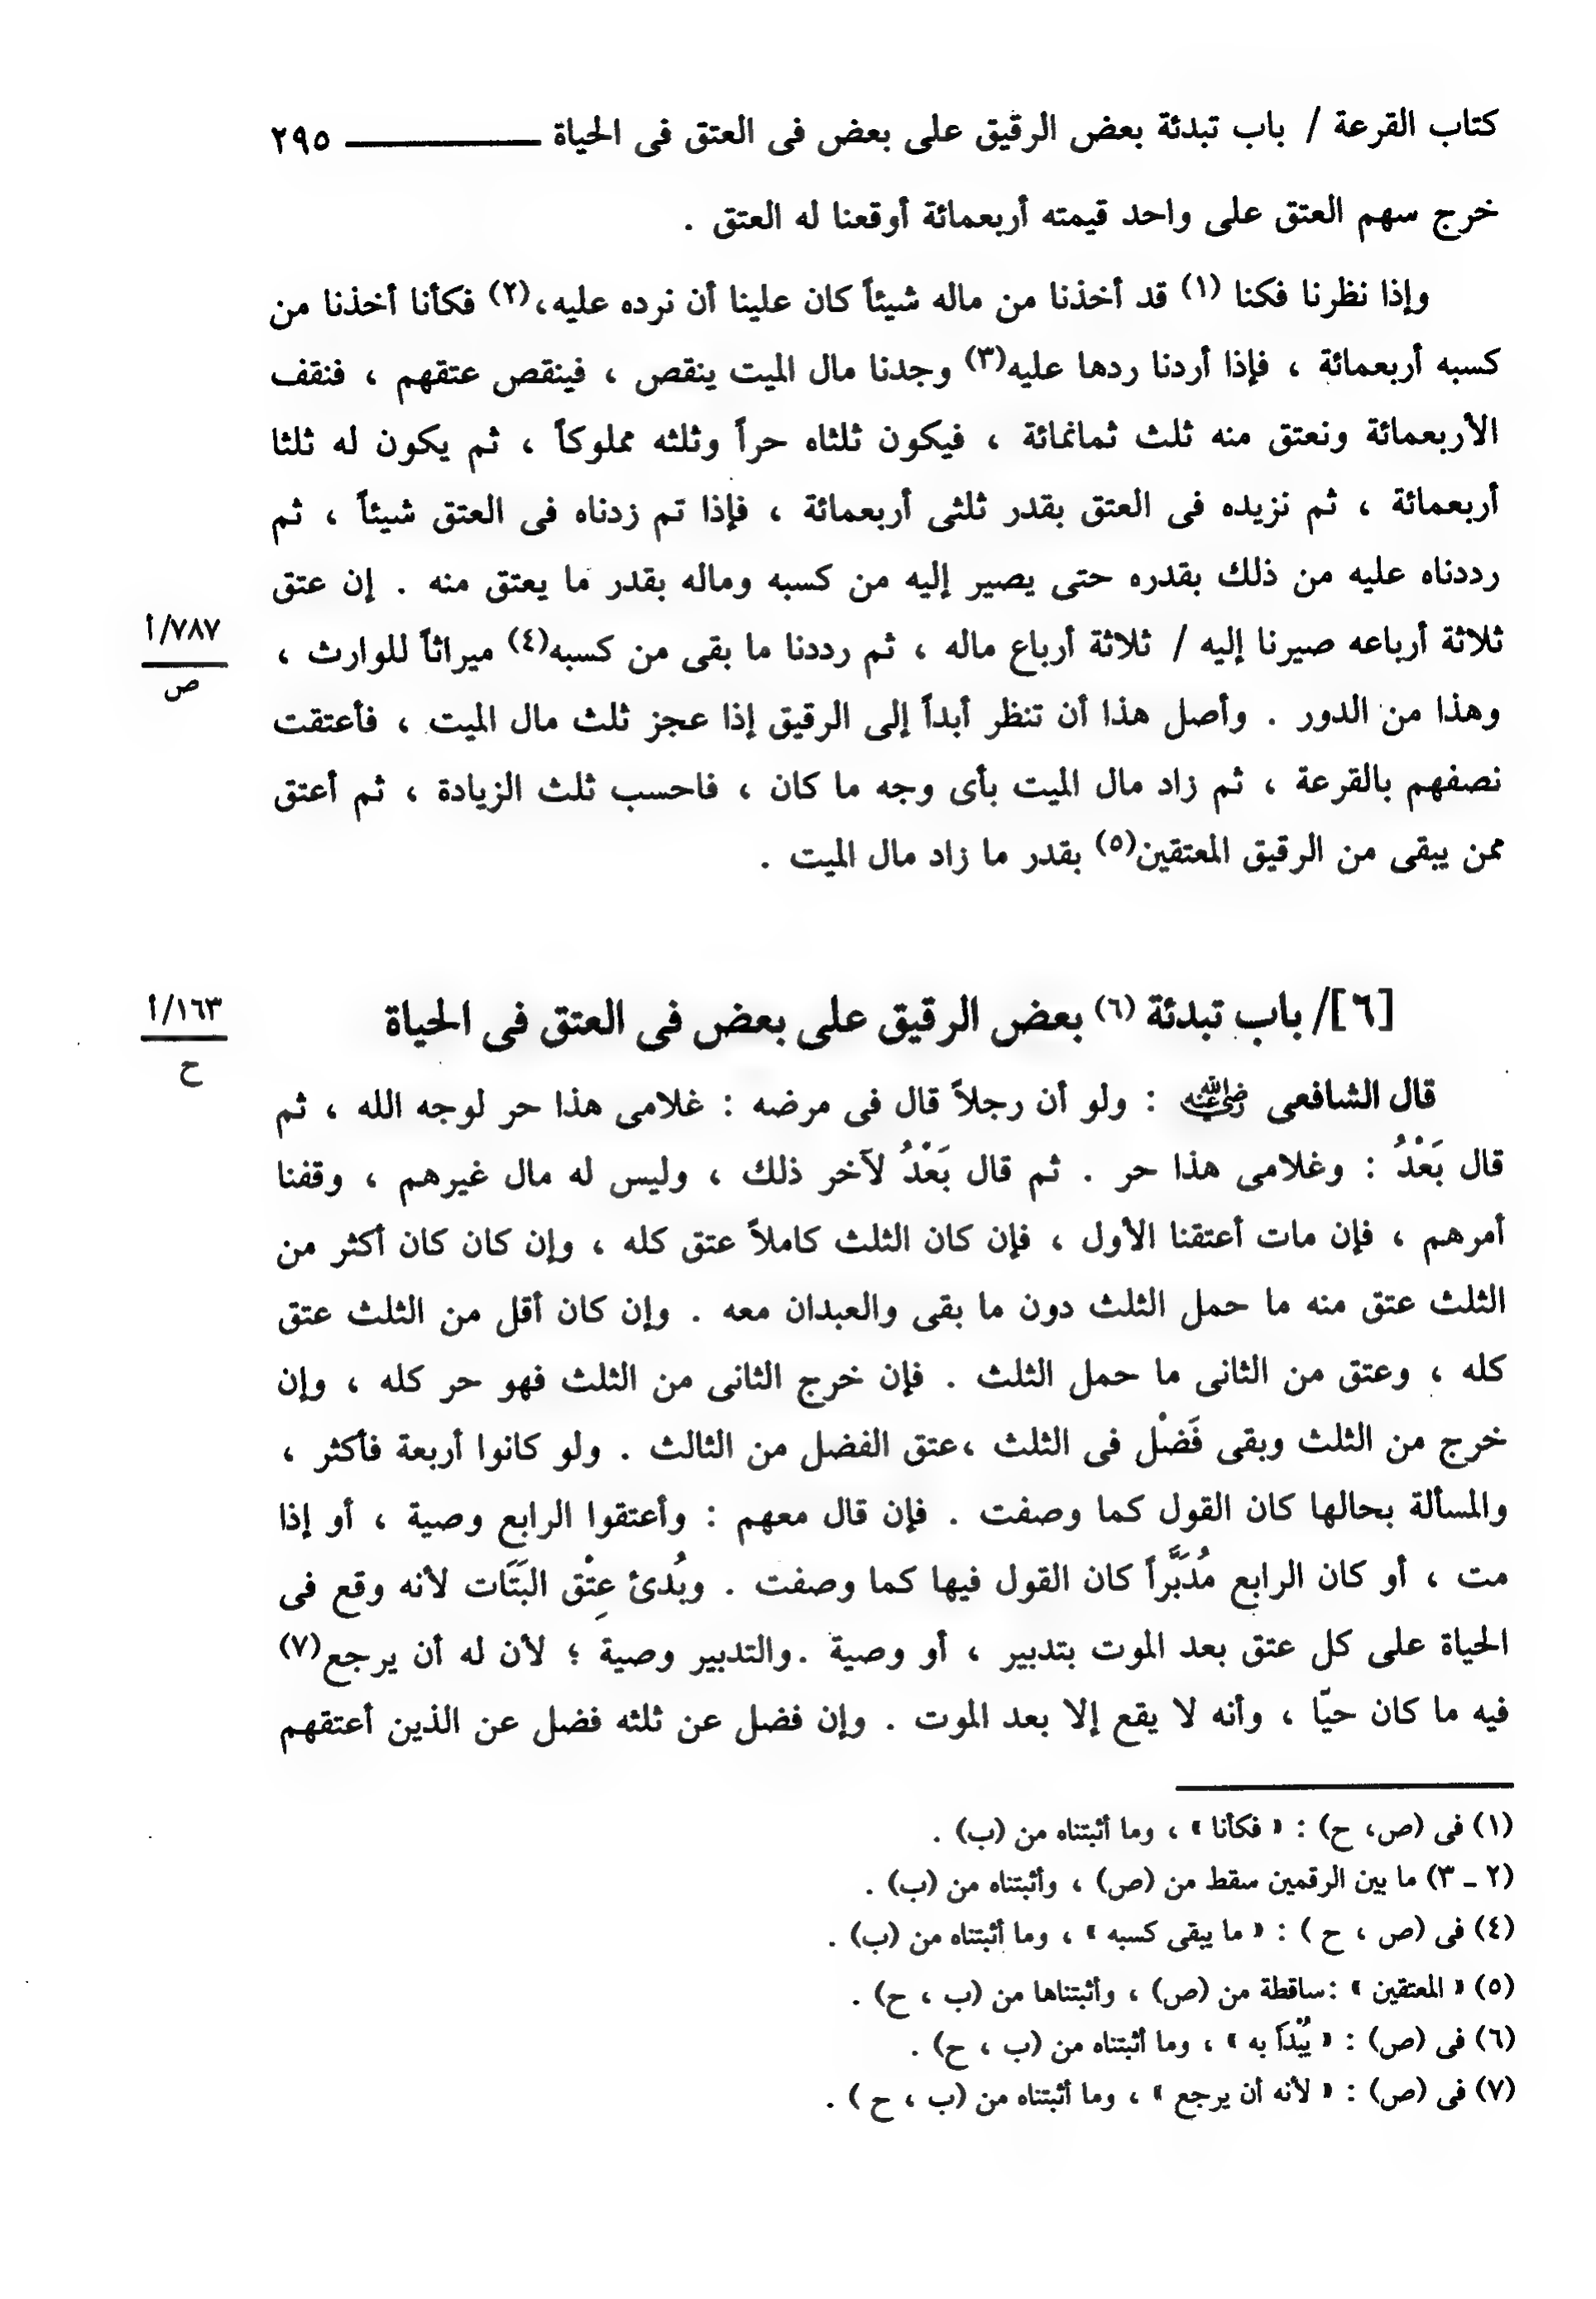 كتاب القرعة / باب تبدئة بعض الرقيق على بعض فى العتق فى الحياة ـــــــ ٢٩٥
خرج سهم العتق على واحد قيمته أربعمائة أوقعنا له العتق .
وإذا نظرنا فكنا (١) قد أخذنا من ماله شيئاً كان علينا أن نرده عليه،(٢) فكأنا أخذنا من
كسبه أربعمائة ، فإذا أردنا ردها عليه(٣) وجدنا مال الميت ينقص ، فينقص عتقهم ، فنقف
الأربعمائة ونعتق منه ثلث ثمانمائة ، فيكون ثلثاه حراً وثلثه مملوكاً ، ثم يكون له ثلثا
أربعمائة ، ثم نزيده فى العتق بقدر ثلثى أربعمائة ، فإذا تم زدناه فى العتق شيئاً ، ثم
رددناه عليه من ذلك بقدره حتى يصير إليه من كسبه وماله بقدر ما يعتق منه . إن عتق
ثلاثة أرباعه صيرنا إليه / ثلاثة أرباع ماله ، ثم رددنا ما بقى من كسبه(٤) ميراثاً للوارث ،
٧٨٧/أ
ص
وهذا من الدور . وأصل هذا أن تنظر أبداً إلى الرقيق إذا عجز ثلث مال الميت ، فأعتقت
نصفهم بالقرعة ، ثم زاد مال الميت بأى وجه ما كان ، فاحسب ثلث الزيادة ، ثم أعتق
ممن يبقى من الرقيق المعتقين(٥) بقدر ما زاد مال الميت .
[٦]/ باب تبدئة (٦) بعض الرقيق على بعض فى العتق فى الحياة
١٦٣/أ
ح
قال الشافعى رضي الله عنه : ولو أن رجلاً قال فى مرضه : غلامى هذا حر لوجه الله ، ثم
قال بَعْدُ : وغلامى هذا حر . ثم قال بَعْدُ لآخر ذلك ، وليس له مال غيرهم ، وقفنا
أمرهم ، فإن مات أعتقنا الأول ، فإن كان الثلث كاملاً عتق كله ، وإن كان كان أكثر من
الثلث عتق منه ما حمل الثلث دون ما بقى والعبدان معه . وإن كان أقل من الثلث عتق
كله ، وعتق من الثانى ما حمل الثلث . فإن خرج الثانى من الثلث فهو حر كله ، وإن
خرج من الثلث وبقى فَضْل فى الثلث ،عتق الفضل من الثالث . ولو كانوا أربعة فأكثر ،
والمسألة بحالها كان القول كما وصفت . فإن قال معهم : وأعتقوا الرابع وصية ، أو إذا
مت ، أو كان الرابع مُدَبَّراً كان القول فيها كما وصفت . وبُدئ عِتْق البَتَات لأنه وقع فى
الحياة على كل عتق بعد الموت بتدبير ، أو وصية .والتدبير وصية ؛ لأن له أن يرجع(٧)
فيه ما كان حيّا ، وأنه لا يقع إلا بعد الموت . وإن فضل عن ثلثه فضل عن الذين أعتقهم
(١) فى (ص، ح) : « فكأنا » ، وما أثبتناه من (ب) .
(٢ ـ ٣) ما بين الرقمين سقط من (ص) ، وأثبتناه من (ب) .
(٤) فى (ص ، ح ) : « ما يبقى كسبه » ، وما أثبتناه من (ب) .
(٥) « المعتقين » :ساقطة من (ص) ، وأثبتناها من (ب ، ح) .
(٦) فى (ص) : « يُبْدَأ به » ، وما أثبتناه من (ب ، ح) .
(٧) فى (ص) : « لأنه أن يرجع » ، وما أثبتناه من (ب ، ح ) .